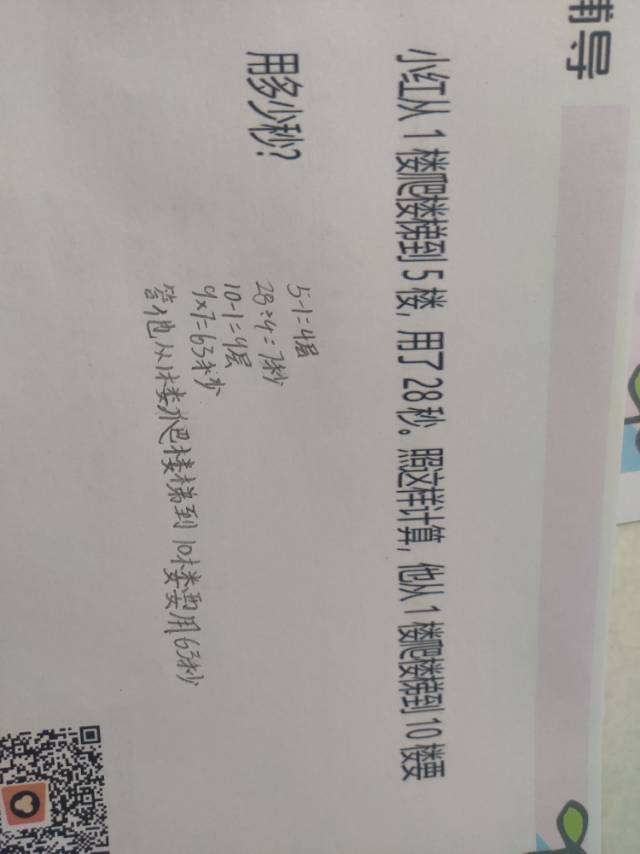 辅导
小红从 1 楼爬楼梯到 5 楼，用了 28 秒。照这样计算，他从 1 楼爬楼梯到 10 楼要
用多少秒？
5-1=4层
28÷4=7秒
10-1=9层
9×7=63秒
答他从1楼爬楼梯到10楼要用63秒